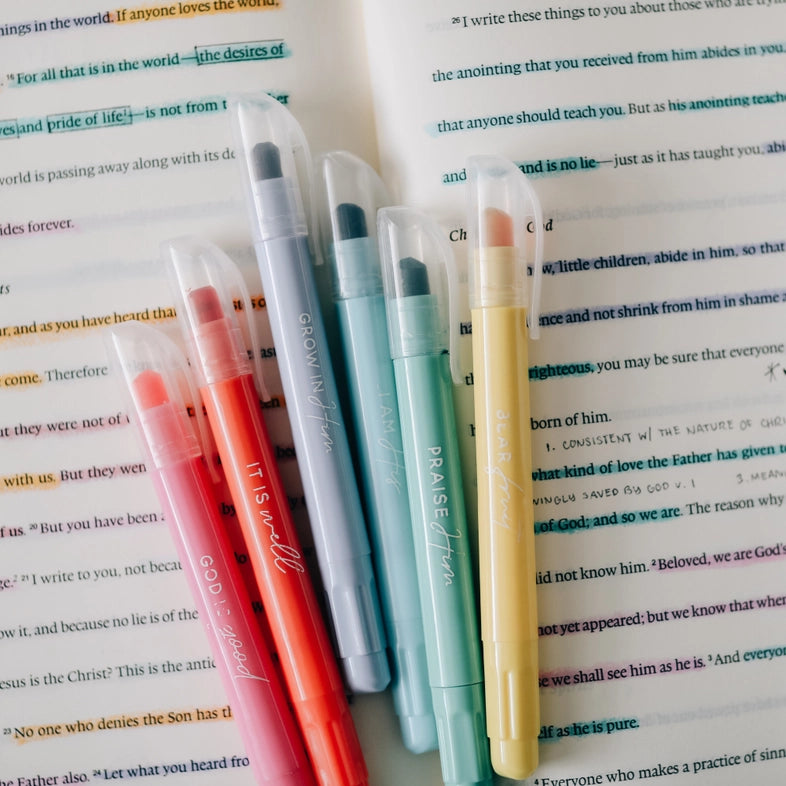 ings in the world. If anyone loves the world,
16 For all that is in the world—the desires of
and pride of life—is not from
world is passing away along with its
ides forever.
and as you have heard
come. Therefore
they were not of
with us. But they
of us. 20 But you have been
21 I write to you, not
it, and because no lie is of the
is the Christ? This is the
23 No one who denies the Son has
Father also. 24 Let what you heard
26 I write these things to you about those who are
the anointing that you received from him abides in you,
that anyone should teach you. But as his anointing
and is no lie—just as it has taught you,
little children, abide in him, so that
and not shrink from him in shame
righteous, you may be sure that everyone
born of him.
1. CONSISTENT W/ THE NATURE OF
what kind of love the Father has given
SAVED BY GOD V. 1
of God; and so we are. The reason why
did not know him. 2 Beloved, we are God's
not yet appeared; but we know that
we shall see him as he is. 3 And
as he is pure.
4 Everyone who makes a practice of
GOD IS good
IT IS well
GROW IN Him
I AM His
PRAISE Him
BEAR fruit